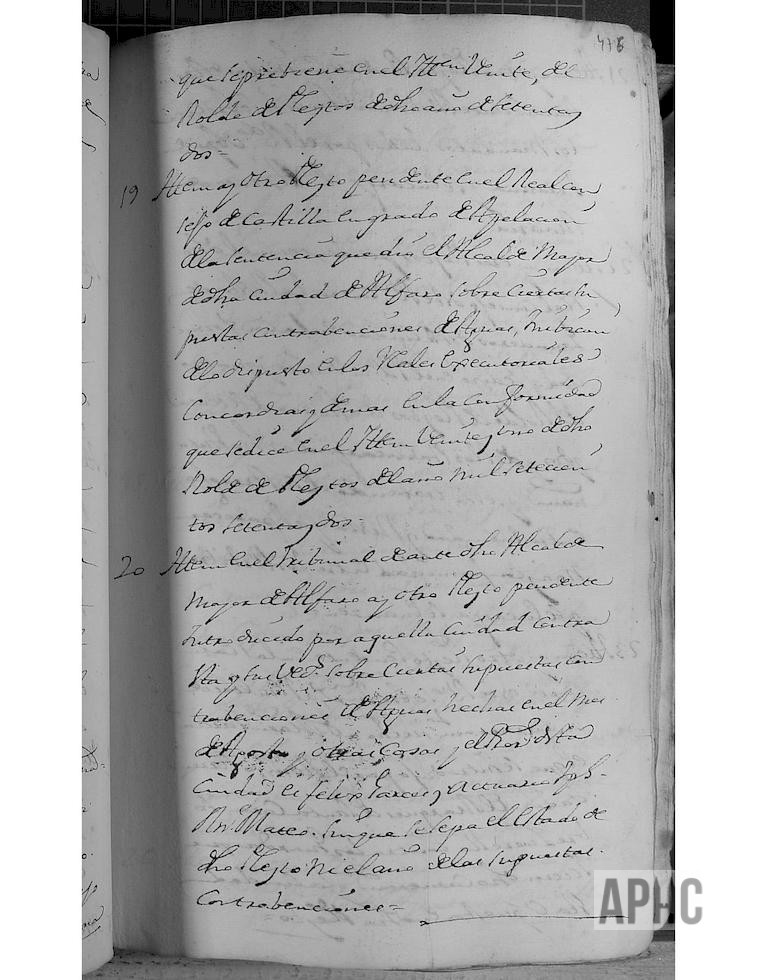 476
que se previene en el Ittem Veinte, del
Rolde de Pleytos de dho año de setenta y
dos=
19 Ittem ay otro Pleyto pendente en el Real con
sejo de Castilla en grado de Apelacion
de la sentencia que dio el Alcalde Mayor
de dha Ciudad de Alfaro sobre ciertas su
puestas contrabenciones de Aguas,
de lo dispuesto en las Reales Executoriales
Concordias y demas en la conformidad
que se dice en el Ittem Veinte y uno de dho
Rolde de Pleytos del año mil setecien
tos setenta y dos=
20 Ittem en el Tribunal de ante dho Alcalde
Mayor de Alfaro ay otro Pleyto pendente
introducido por aquella Ciudad contra
sta y sus Vez.s sobre ciertas supuestas con
trabenciones de Aguas hechas en el mes
de Agosto y otras cosas y el Pror. desta
Ciudad es Felix Garces y Actuario Jph.
Mateo. sin que se sepa el estado de
dho Pleyto ni el año de las supuestas
Contrabenciones=
APHC